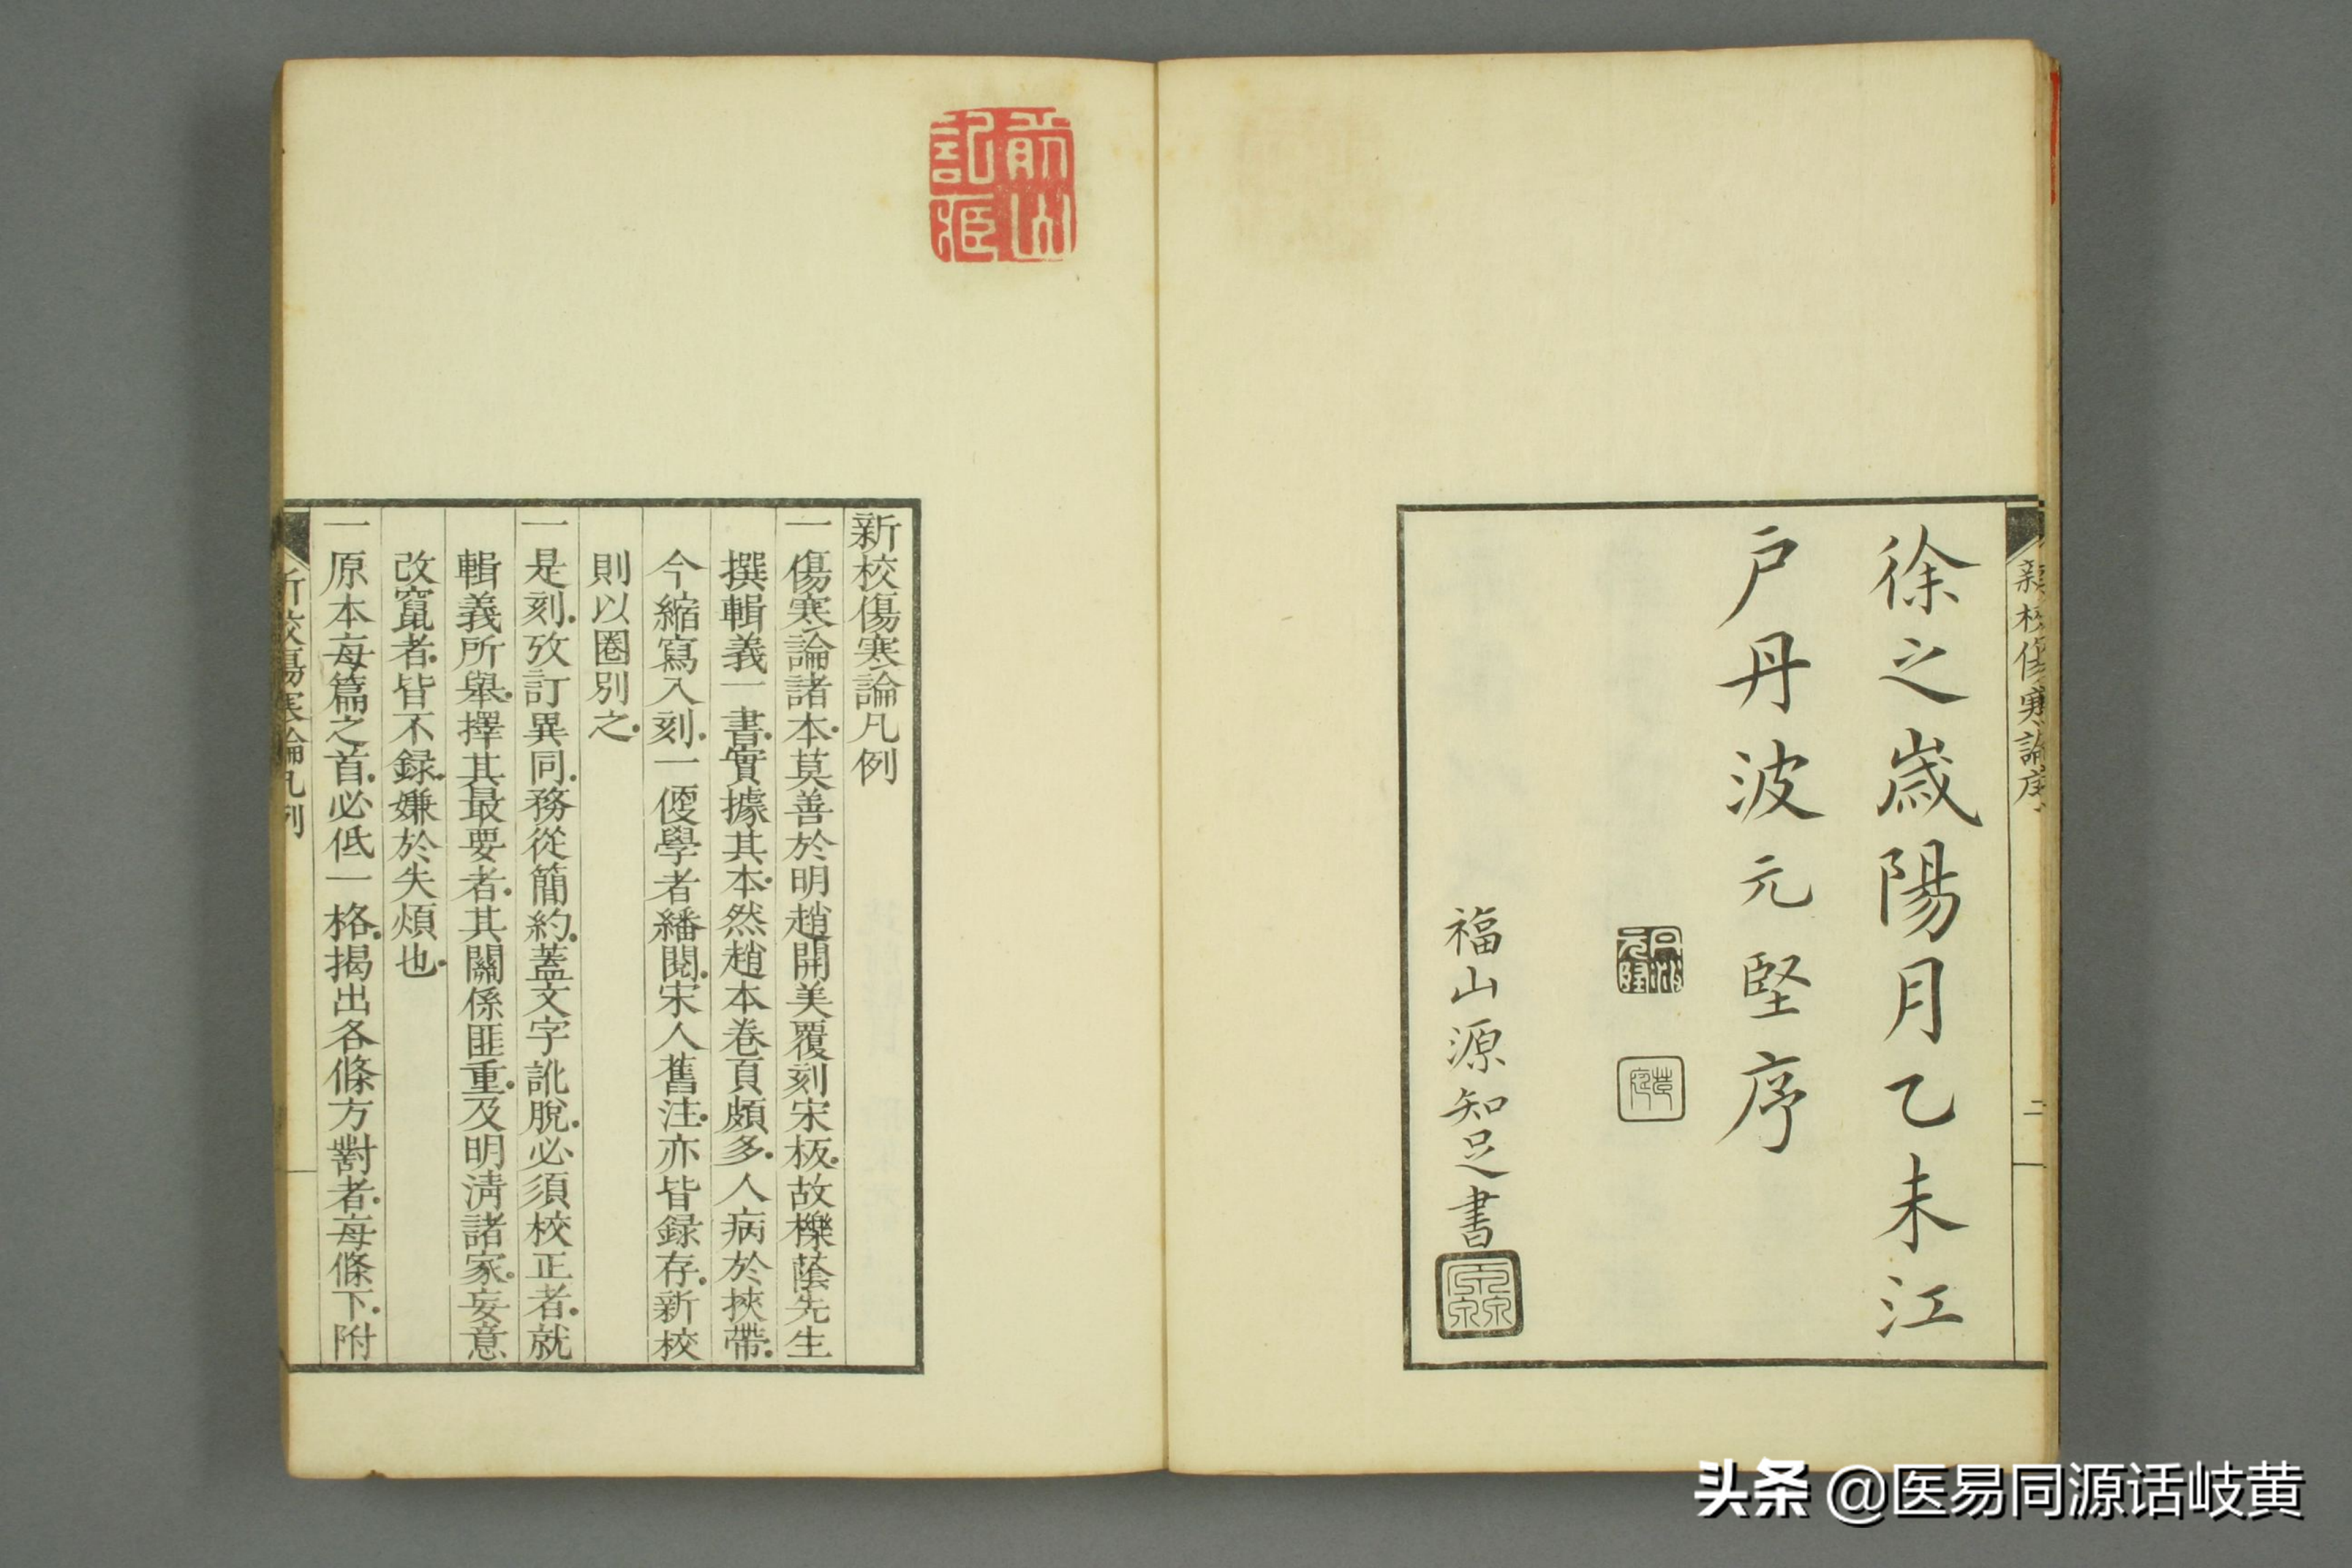 新校傷寒論序
二
徐之歲陽月乙未江
戶丹波元堅序
福山源知足書
新校傷寒論凡例
一傷寒論諸本莫善於明趙開美覆刻宋板故櫟蔭先生
撰輯義一書實據其本然趙本卷頁頗多人病於挾帶
今縮寫入刻一便學者繙閱宋人舊注亦皆録存新校
則以圈別之
一是刻攷訂異同務從簡約蓋文字訛脫必須校正者就
輯義所舉擇其最要者其關係匪重及明淸諸家妄意
改竄者皆不録嫌於失煩也
一原本每篇之首必低一格揭出各條方對者每條下附
新校傷寒論凡例
头条 @医易同源话岐黄